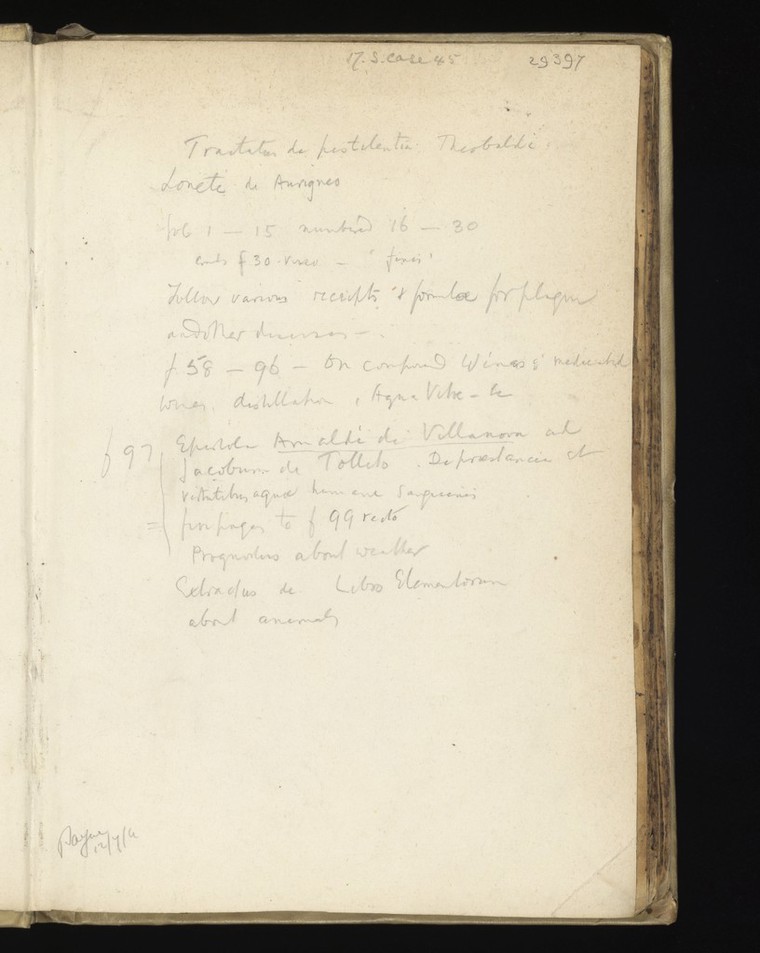 M.S. case 45 29397
Tractatus de pestilentia Theobaldi
Loneti de Aurigneo
fol 1 — 15 numbered 16 — 30
ends f 30 verso — 'finis'
Follow various receipts & formulae for plague
and other diseases —
f. 58 — 96 — On compound Wines & medicated
wines, distillation, Aqua Vitae — &c
f 97 Epistola Arnaldi de Villanova ad
Jacobum de Tolleto. De praestancia et
virtutibus aquae humane sanguinis
= five pages to f 99 recto
Prognostics about weather
Extractus de Libro Elementorum
about animals
Payne